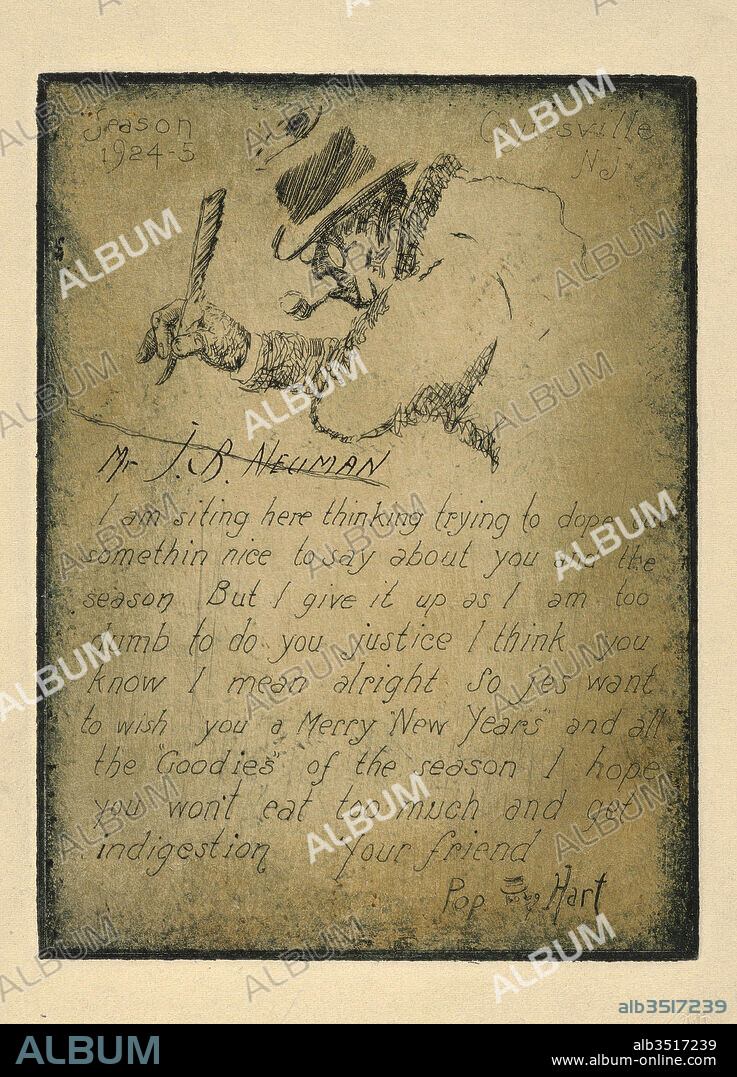 Season
1924-5
Coytesville
N-J
Mr J. B. NEUMAN
I am siting here thinking trying to dope out
somethin nice to say about you and the
season But I give it up as I am too
dumb to do you justice I think you
know I mean alright So jes want
to wish you a Merry "New Years" and all
the "Goodies" of the season I hope
you won't eat too much and get
indigestion Your friend
Pop Hart
ALBUM
alb3517239
ALBUM
alb3517239
www.album-online.com